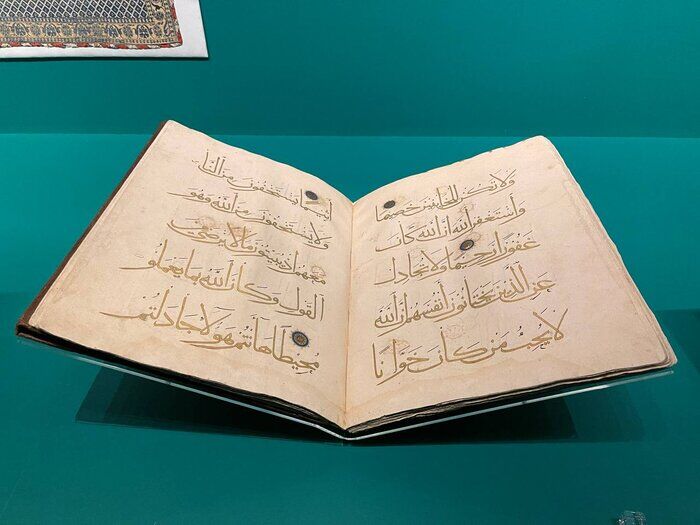 ولا تكن للخائنين خصيما
واستغفر الله ان الله كان
غفورا رحيما ولا تجادل
عن الذين يختانون انفسهم ان الله
لا يحب من كان خوانا
اثيما يستخفون من الناس
ولا يستخفون من الله وهو
معهم اذ يبيتون ما لا يرضى من
القول وكان الله بما يعملون
محيطا هانتم هولا جادلتم